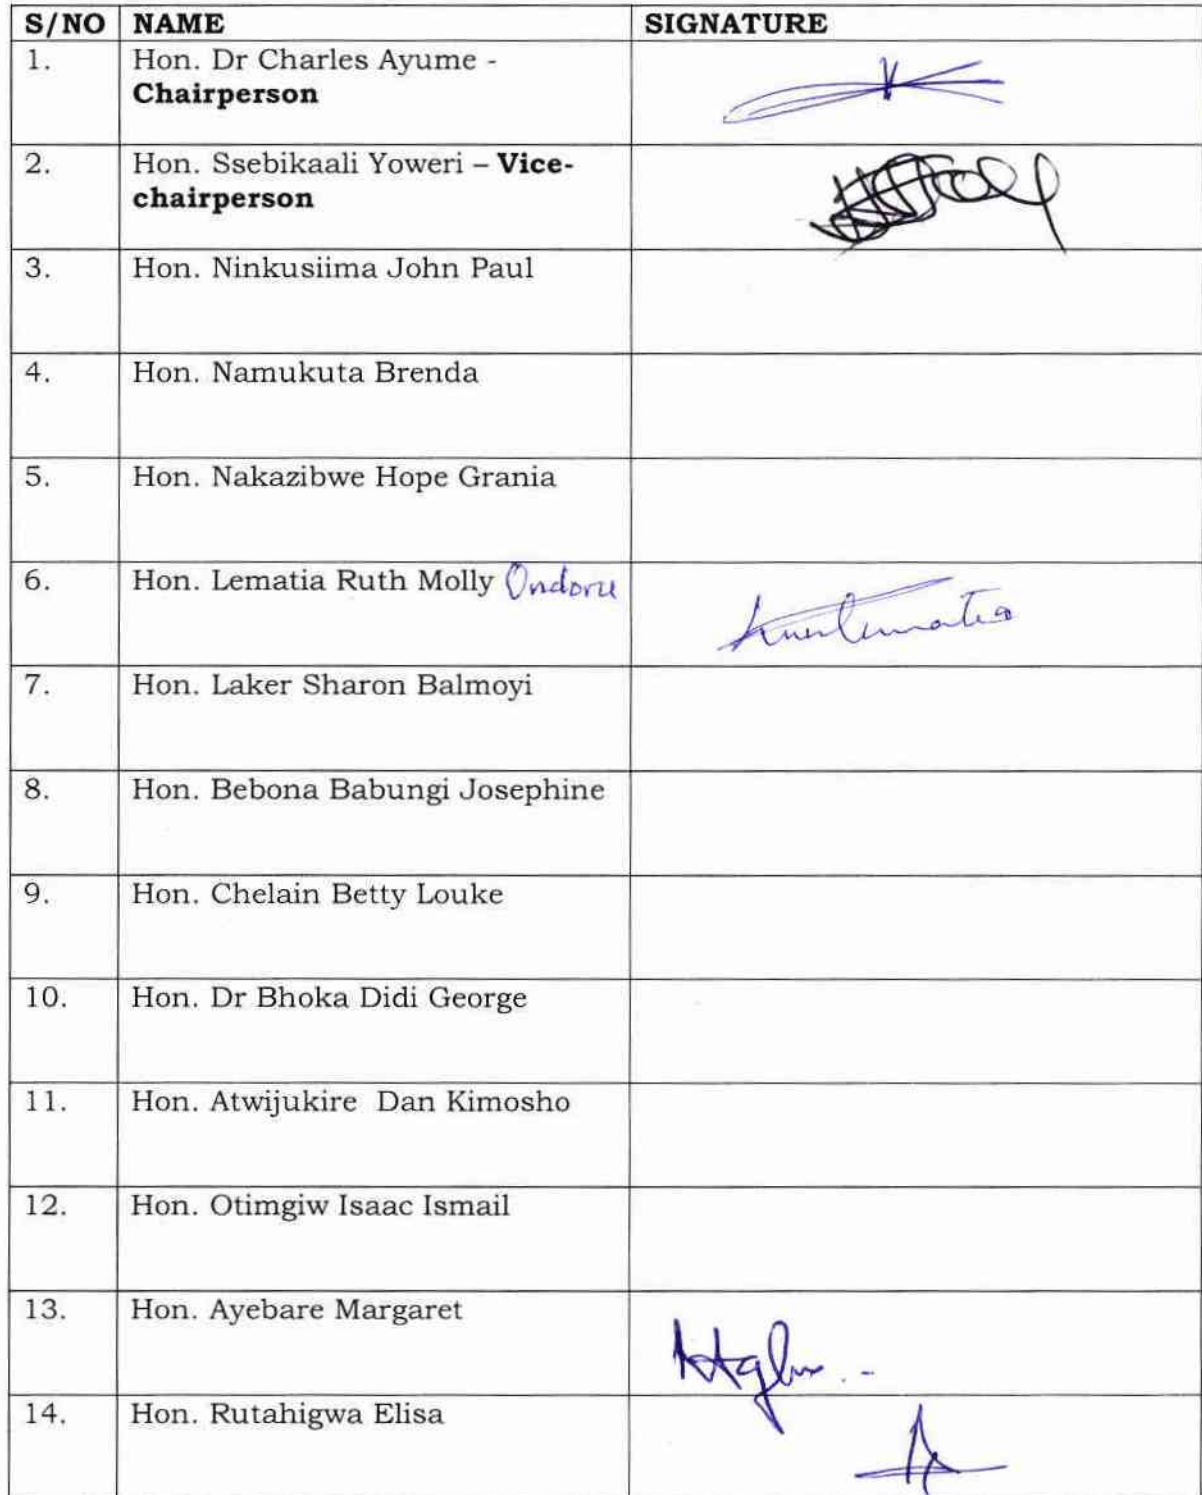 S/NO NAME SIGNATURE
1. Hon. Dr Charles Ayume -
Chairperson
2. Hon. Ssebikaali Yoweri – Vice-
chairperson
3. Hon. Ninkusiima John Paul
4. Hon. Namukuta Brenda
5. Hon. Nakazibwe Hope Grania
6. Hon. Lematia Ruth Molly Ondoru
7. Hon. Laker Sharon Balmoyi
8. Hon. Bebona Babungi Josephine
9. Hon. Chelain Betty Louke
10. Hon. Dr Bhoka Didi George
11. Hon. Atwijukire Dan Kimosho
12. Hon. Otimgiw Isaac Ismail
13. Hon. Ayebare Margaret
14. Hon. Rutahigwa Elisa